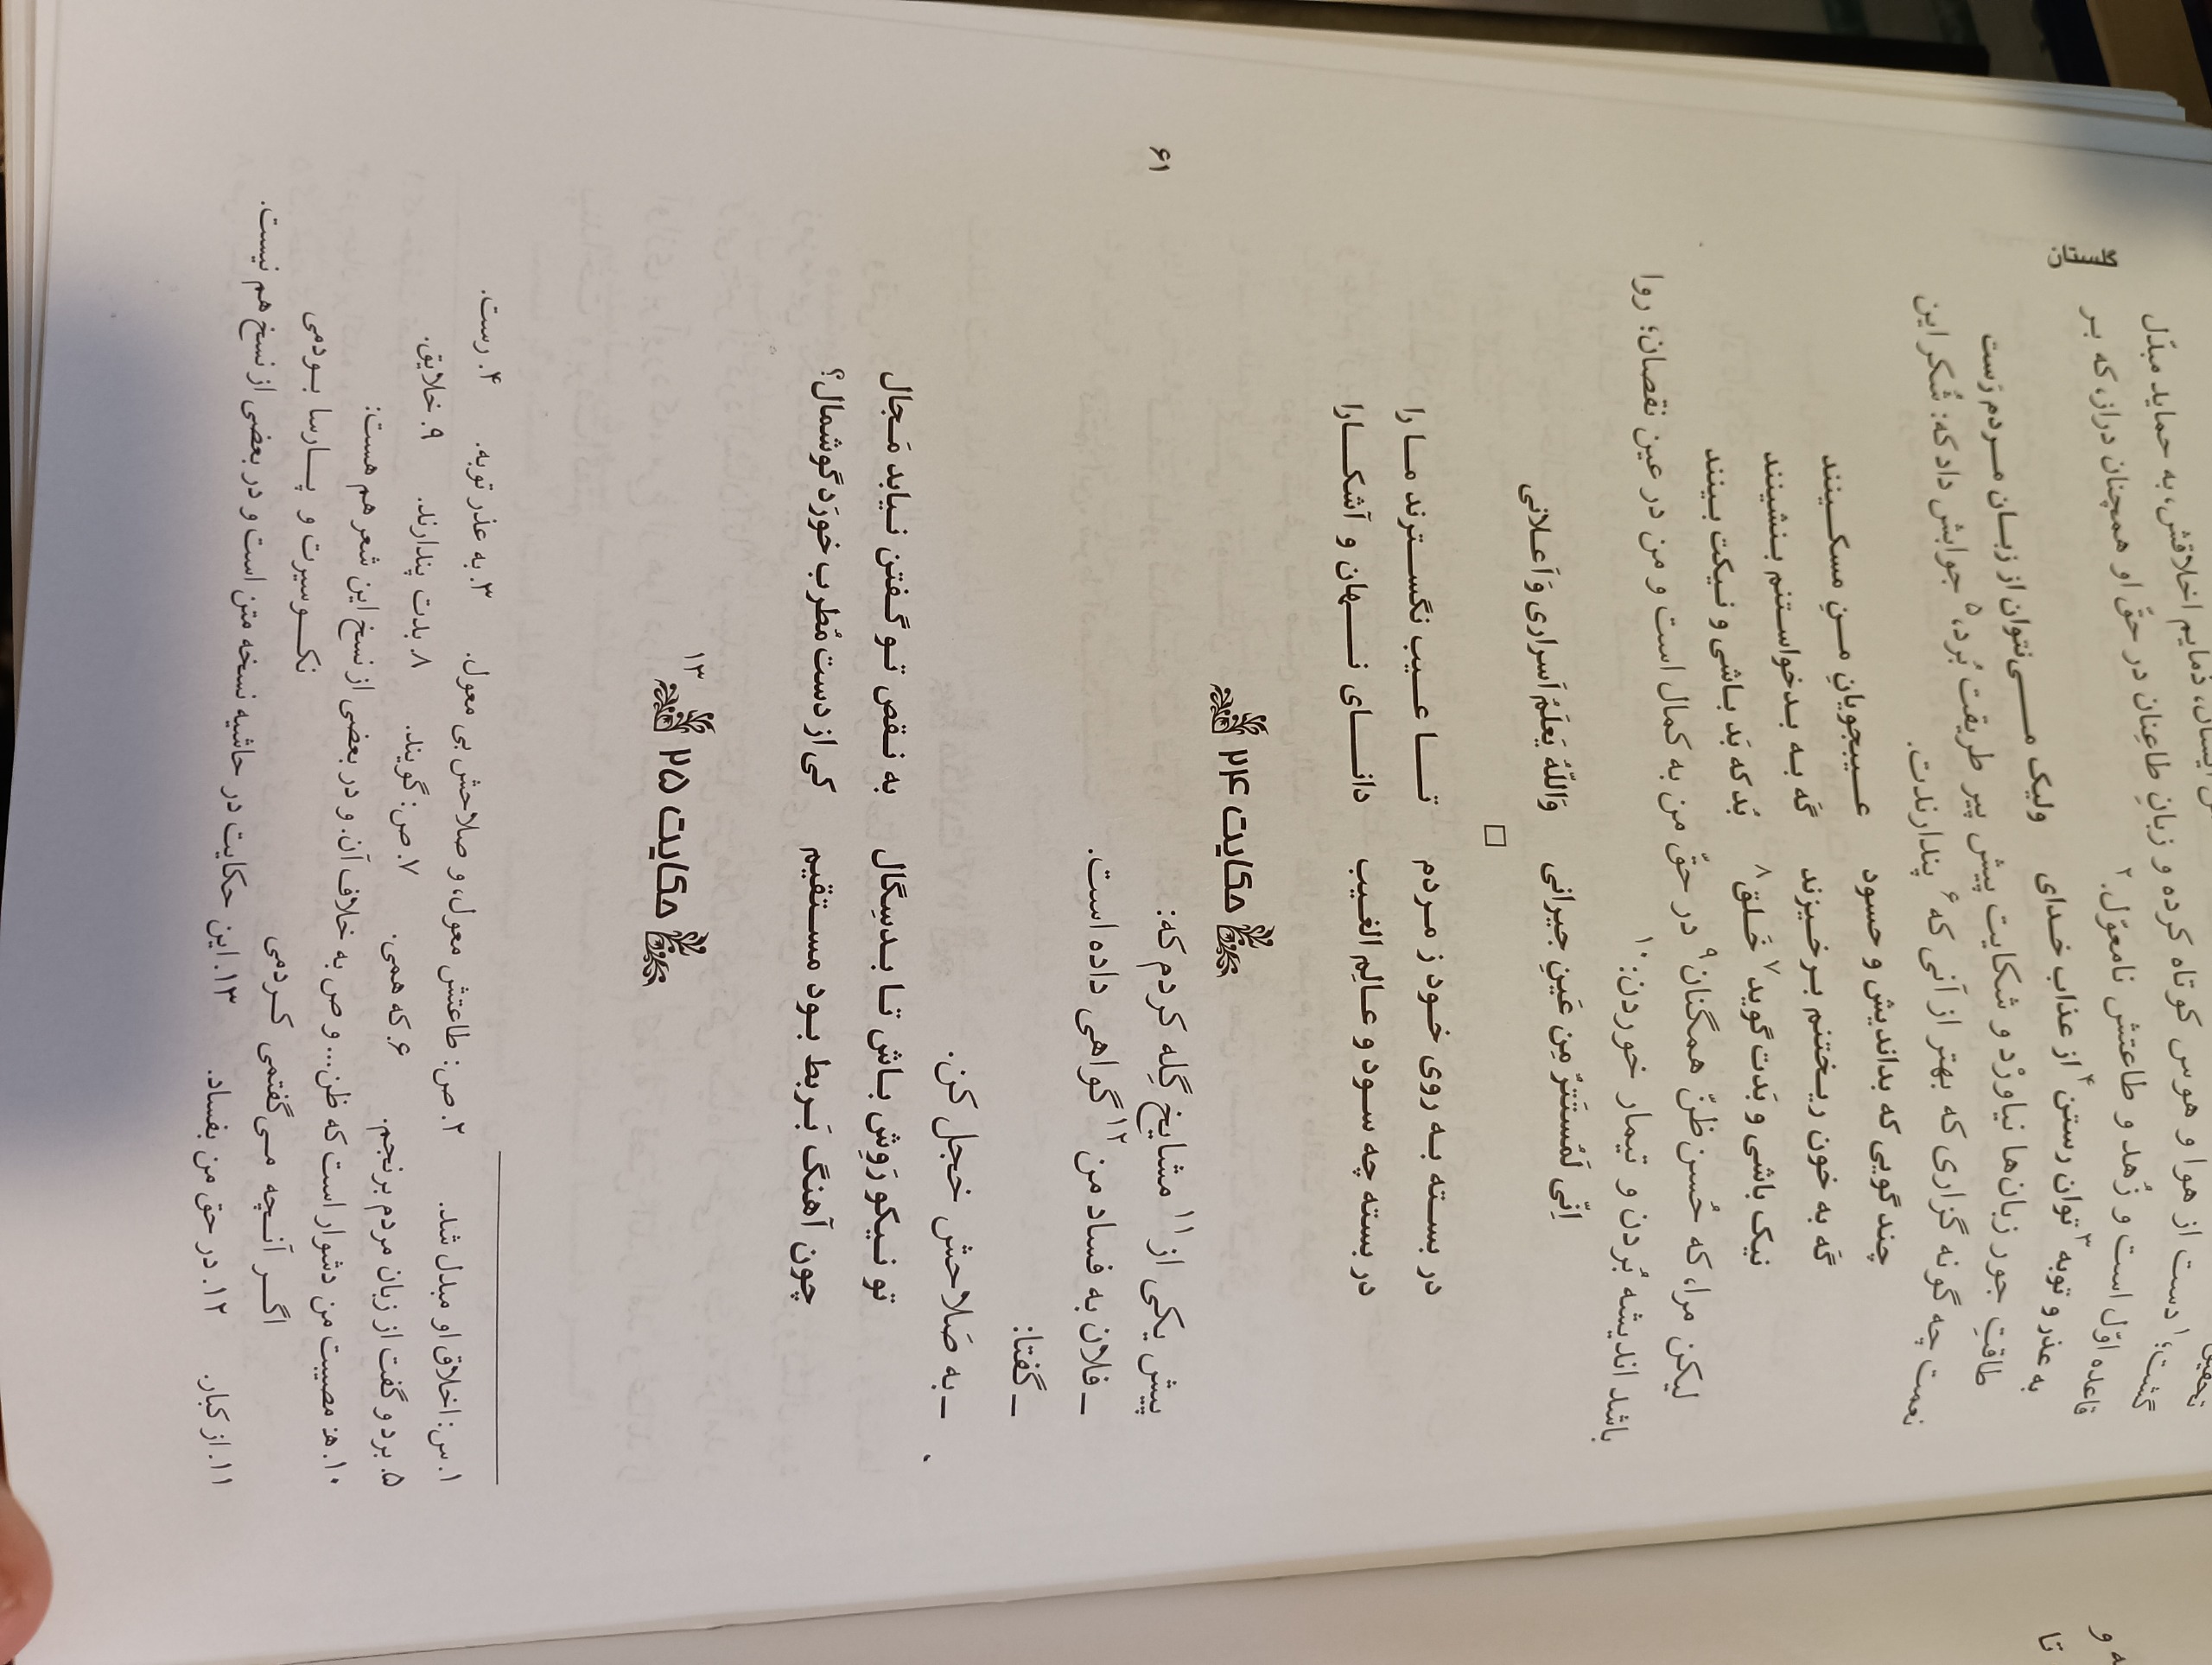 گلستان
۶۱
ایشان، ذمایم اخلاقش، به حماید مبدّل
گشت؛۱ دست از هوا و هوس کوتاه کرده و زبانِ طاعِنان در حقّ او همچنان دراز، که بر
قاعده اوّل است و زُهد و طاعتش نامعوّل.۲
به عذر و توبه۳ توان رستن۴ از عذاب خدای ولیک می‌نتوان از زبان مردم رَست
طاقتِ جور زبان‌ها نیاورْد و شکایت پیش پیر طریقت بُرد،۵ جوابش داد که: شُکر این
نعمت چه گونه گزاری که بهتر از آنی که۶ پندارندت.
چند گویی که بداندیش و حسود عیبجویانِ منِ مسکینند
گَه به خون ریختنم برخیزند گَه به بدخواستنم بنشینند
نیک باشی و بَدَت گوید۷ خَلق۸ بُد که بَد باشی و نیکت بینند
لیکن مرا، که حُسن ظنّ همگنان۹ در حقّ من به کمال است و من در عین نقصان؛ روا
باشد اندیشه بُردن و تیمار خوردن:۱۰
اِنّی لَمُستَتِرٌ مِن عَینِ جیرانی وَاللّهُ یَعلَمُ اَسراری وَ اَعلانی
□
در بسته به روی خود ز مردم تا عیب نگسترند ما را
در بسته چه سود و عالِم الغیب دانای نهان و آشکارا
حکایت ۲۴
پیش یکی از۱۱ مشایخ گِله کردم که:
ـ فلان به فساد من۱۲ گواهی داده است.
ـ گفتا:
ـ به صَلاحش خجل کن.
تو نیکو رَوِش باش تا بدسِگال به نقص تو گفتن نیابد مَجال
چون آهنگ بَربط بود مستقیم کی از دست مُطرب خورَد گوشمال؟
حکایت ۲۵ ۱۳
۱. س: اخلاق او مبدل شد. ۲. ص: طاعتش معول، و صلاحش بی معول. ۳. به عذر توبه. ۴. رست.
۵. برد و گفت از زبان مردم برنجم. ۶. که همی. ۷. ص: گویند. ۸. بدت پندارند. ۹. خلایق.
۱۰. هذ مصیبت من دشوار است که ظن... و ص به خلاف آن. و در بعضی از نسخ این شعر هم هست:
اگر آنچه می‌گفتمی کردمی نکوسیرت و پارسا بودمی
۱۱. از کبار. ۱۲. در حق من بفساد. ۱۳. این حکایت در حاشیه نسخه متن است و در بعضی از نسخ هم نیست.